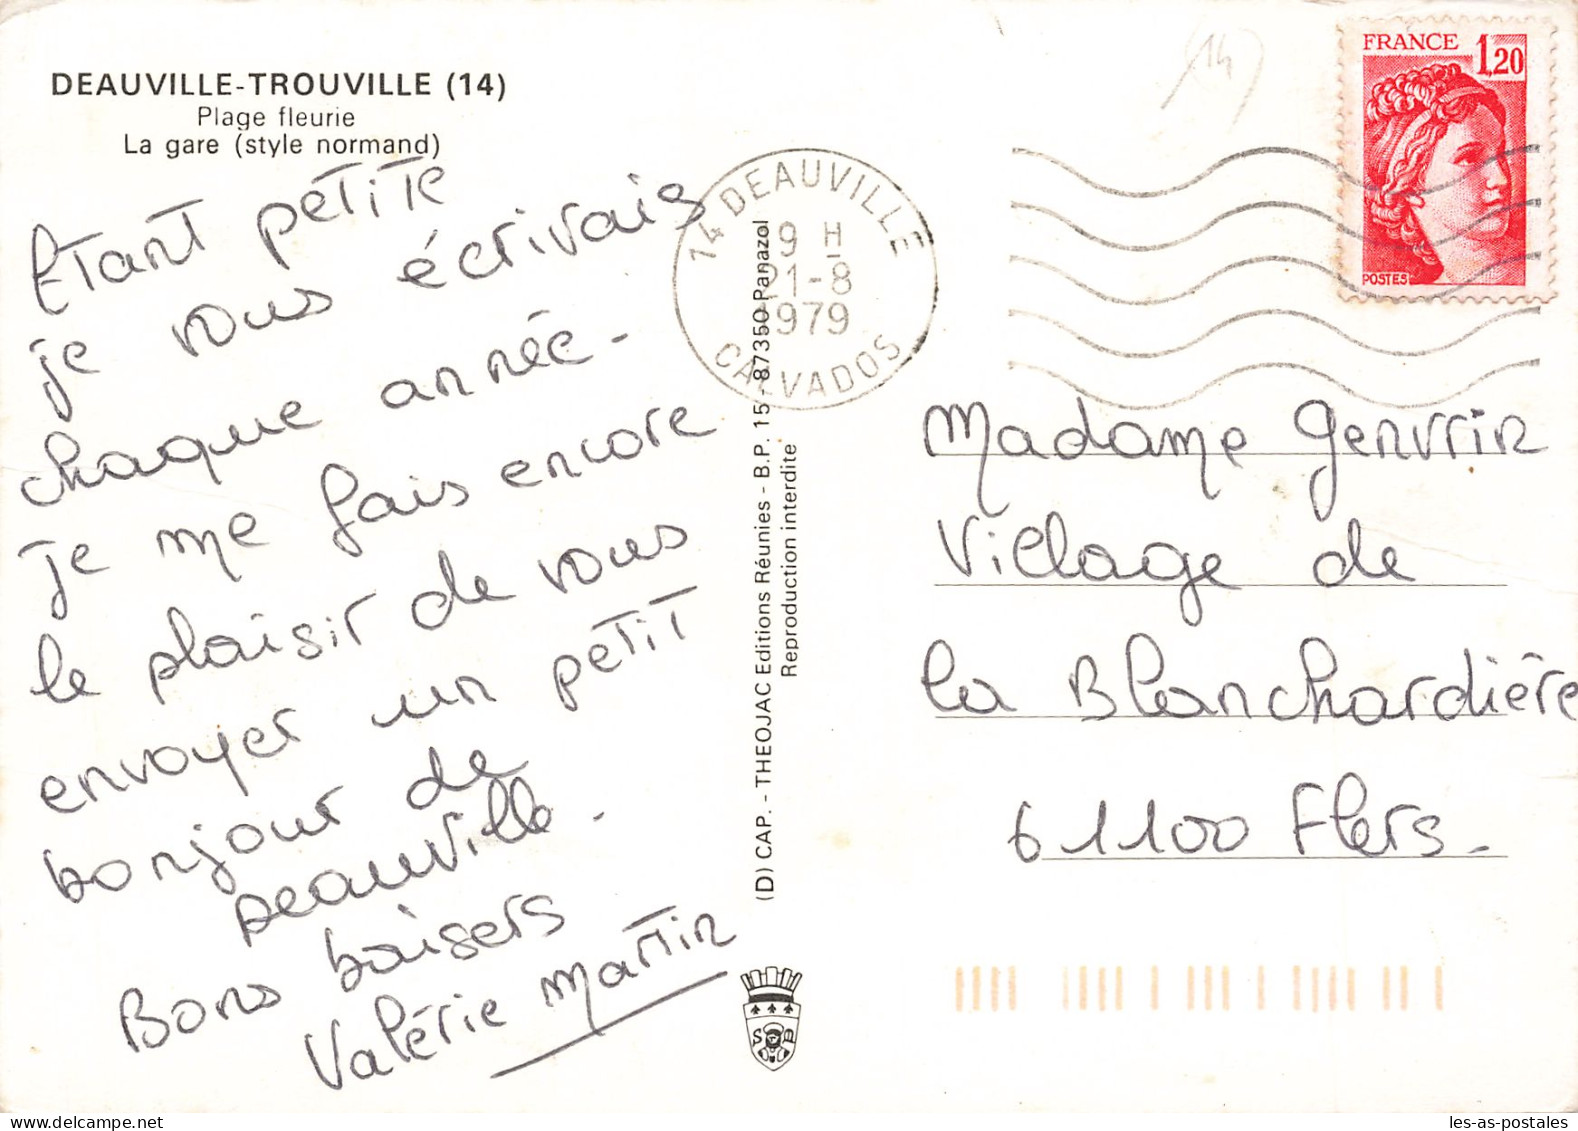 DEAUVILLE-TROUVILLE (14)
Plage fleurie
La gare (style normand)
Etant petite
je vous écrivais
chaque année -
je me fais encore
le plaisir de vous
envoyer un petit
bonjour de
Deauville.
Bons baisers
Valérie Martin
(D) CAP. - THEOJAC Editions Réunies - B.P. 15 - 87350 Panazol
Reproduction interdite
14 DEAUVILLE
19 H
21-8
1979
CALVADOS
(14)
FRANCE 1,20
POSTES
Madame Genvrin
Village de
la Blanchardière
61100 Flers.
les-as-postales